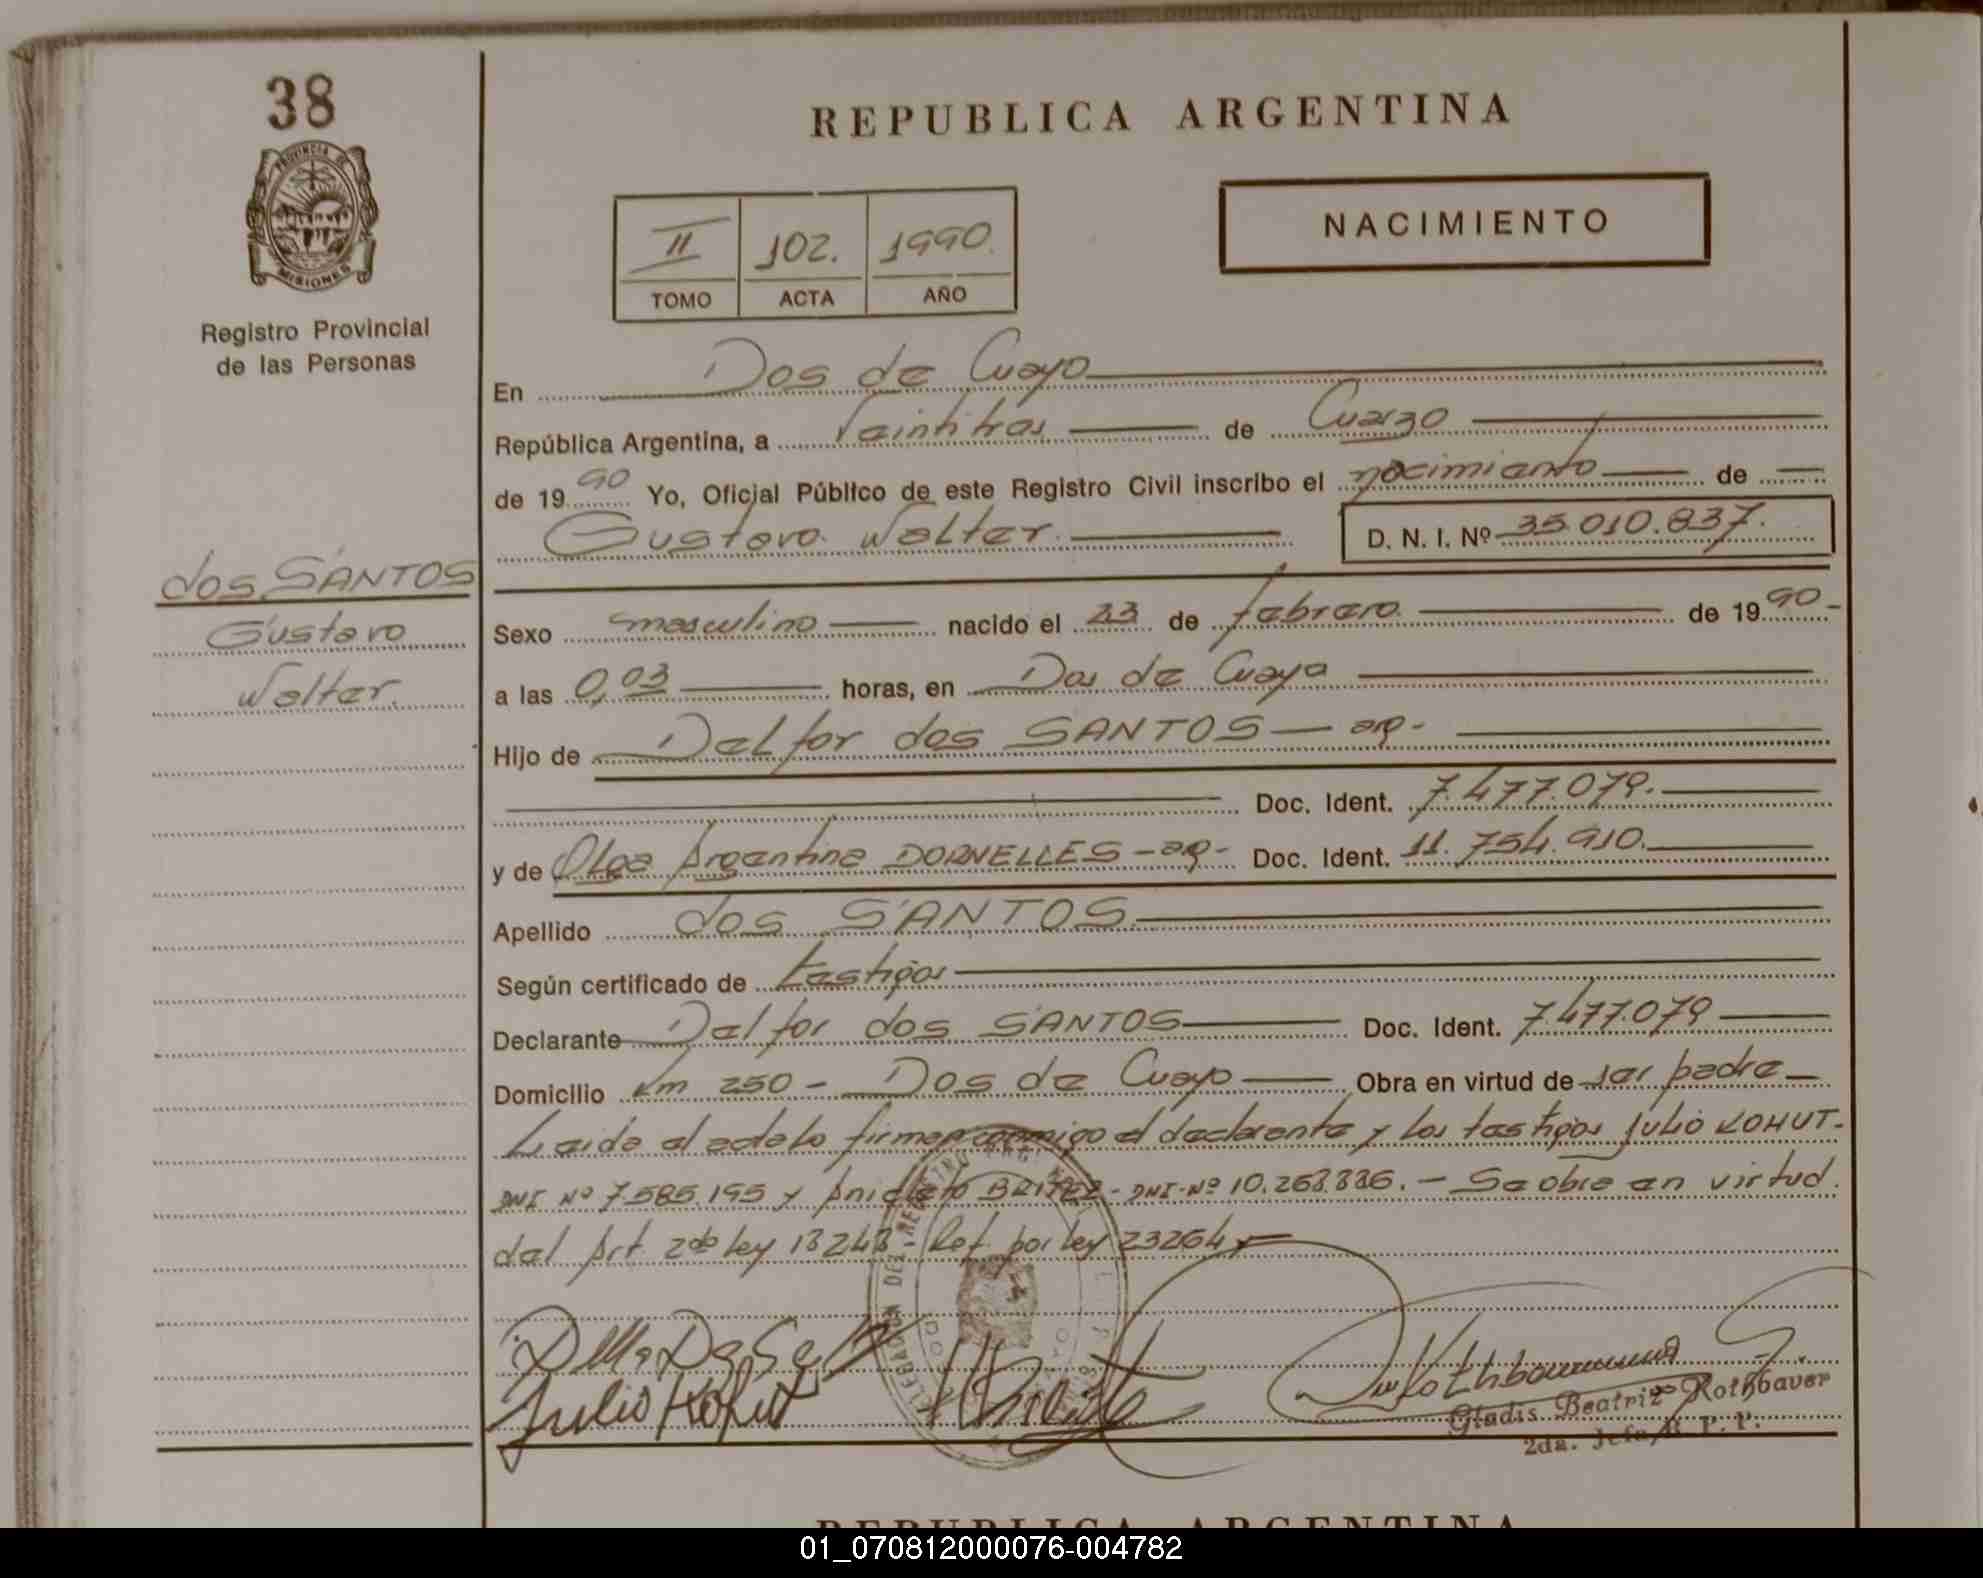 38
PROVINCIA DE
MISIONES
Registro Provincial
de las Personas
dos SANTOS
Gustavo
Walter.
REPUBLICA ARGENTINA
NACIMIENTO
II 102. 1990.
TOMO ACTA AÑO
En Dos de Mayo
República Argentina, a Veintitres de Marzo
de 19 90 Yo, Oficial Público de este Registro Civil inscribo el nacimiento de
Gustavo Walter. D. N. I. Nº 35.010.837.
Sexo masculino nacido el 23 de febrero de 19 90
a las 0,03 horas, en Dos de Mayo
Hijo de Delfor dos SANTOS - arg-
Doc. Ident. 7.477.079.
y de Olga Argentina DORNELLES - arg- Doc. Ident. 11.754.910.
Apellido dos SANTOS
Según certificado de testigos
Declarante Delfor dos SANTOS Doc. Ident. 7.477.079
Domicilio Km 250 - Dos de Mayo Obra en virtud de ser padre
Leida el acta la firman conmigo el declarante y los testigos Julio KOHUT-
DNI Nº 7.585.195 y Anicleto BRITEZ - DNI-Nº 10.268.886. - Se obra en virtud
del Art. 2do ley 18248 - Ref. por ley 23264
Julio Kohut
Gladis Beatriz Rothbaver
2da. Jefa R. P. P.
REPUBLICA ARGENTINA
01_070812000076-004782